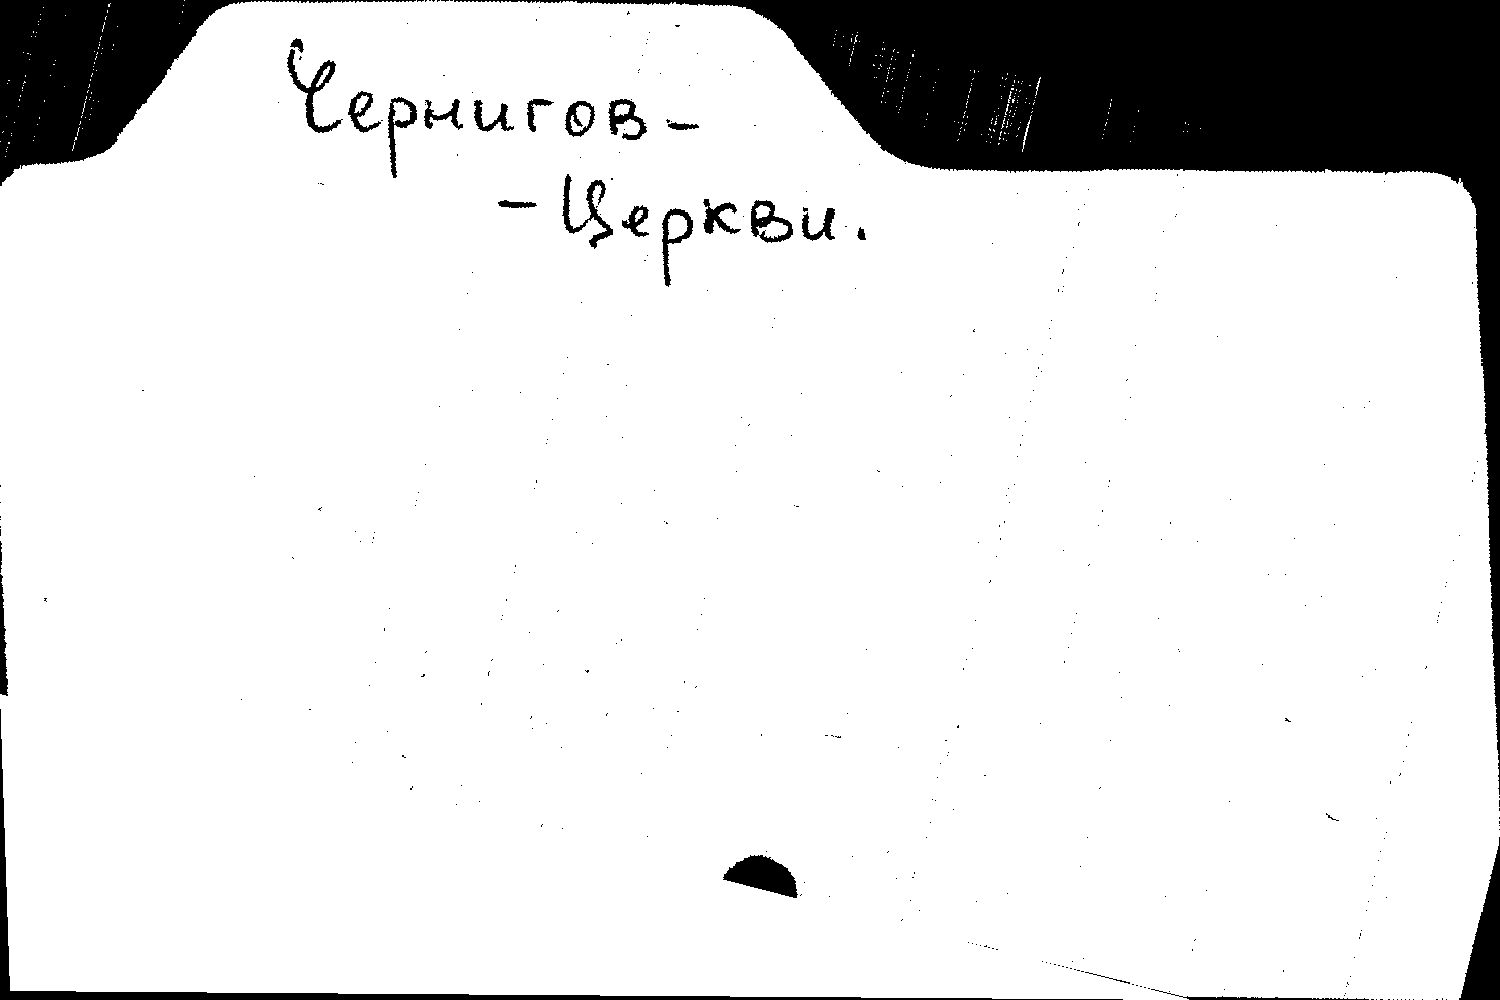 Чернигов-
-Церкви.